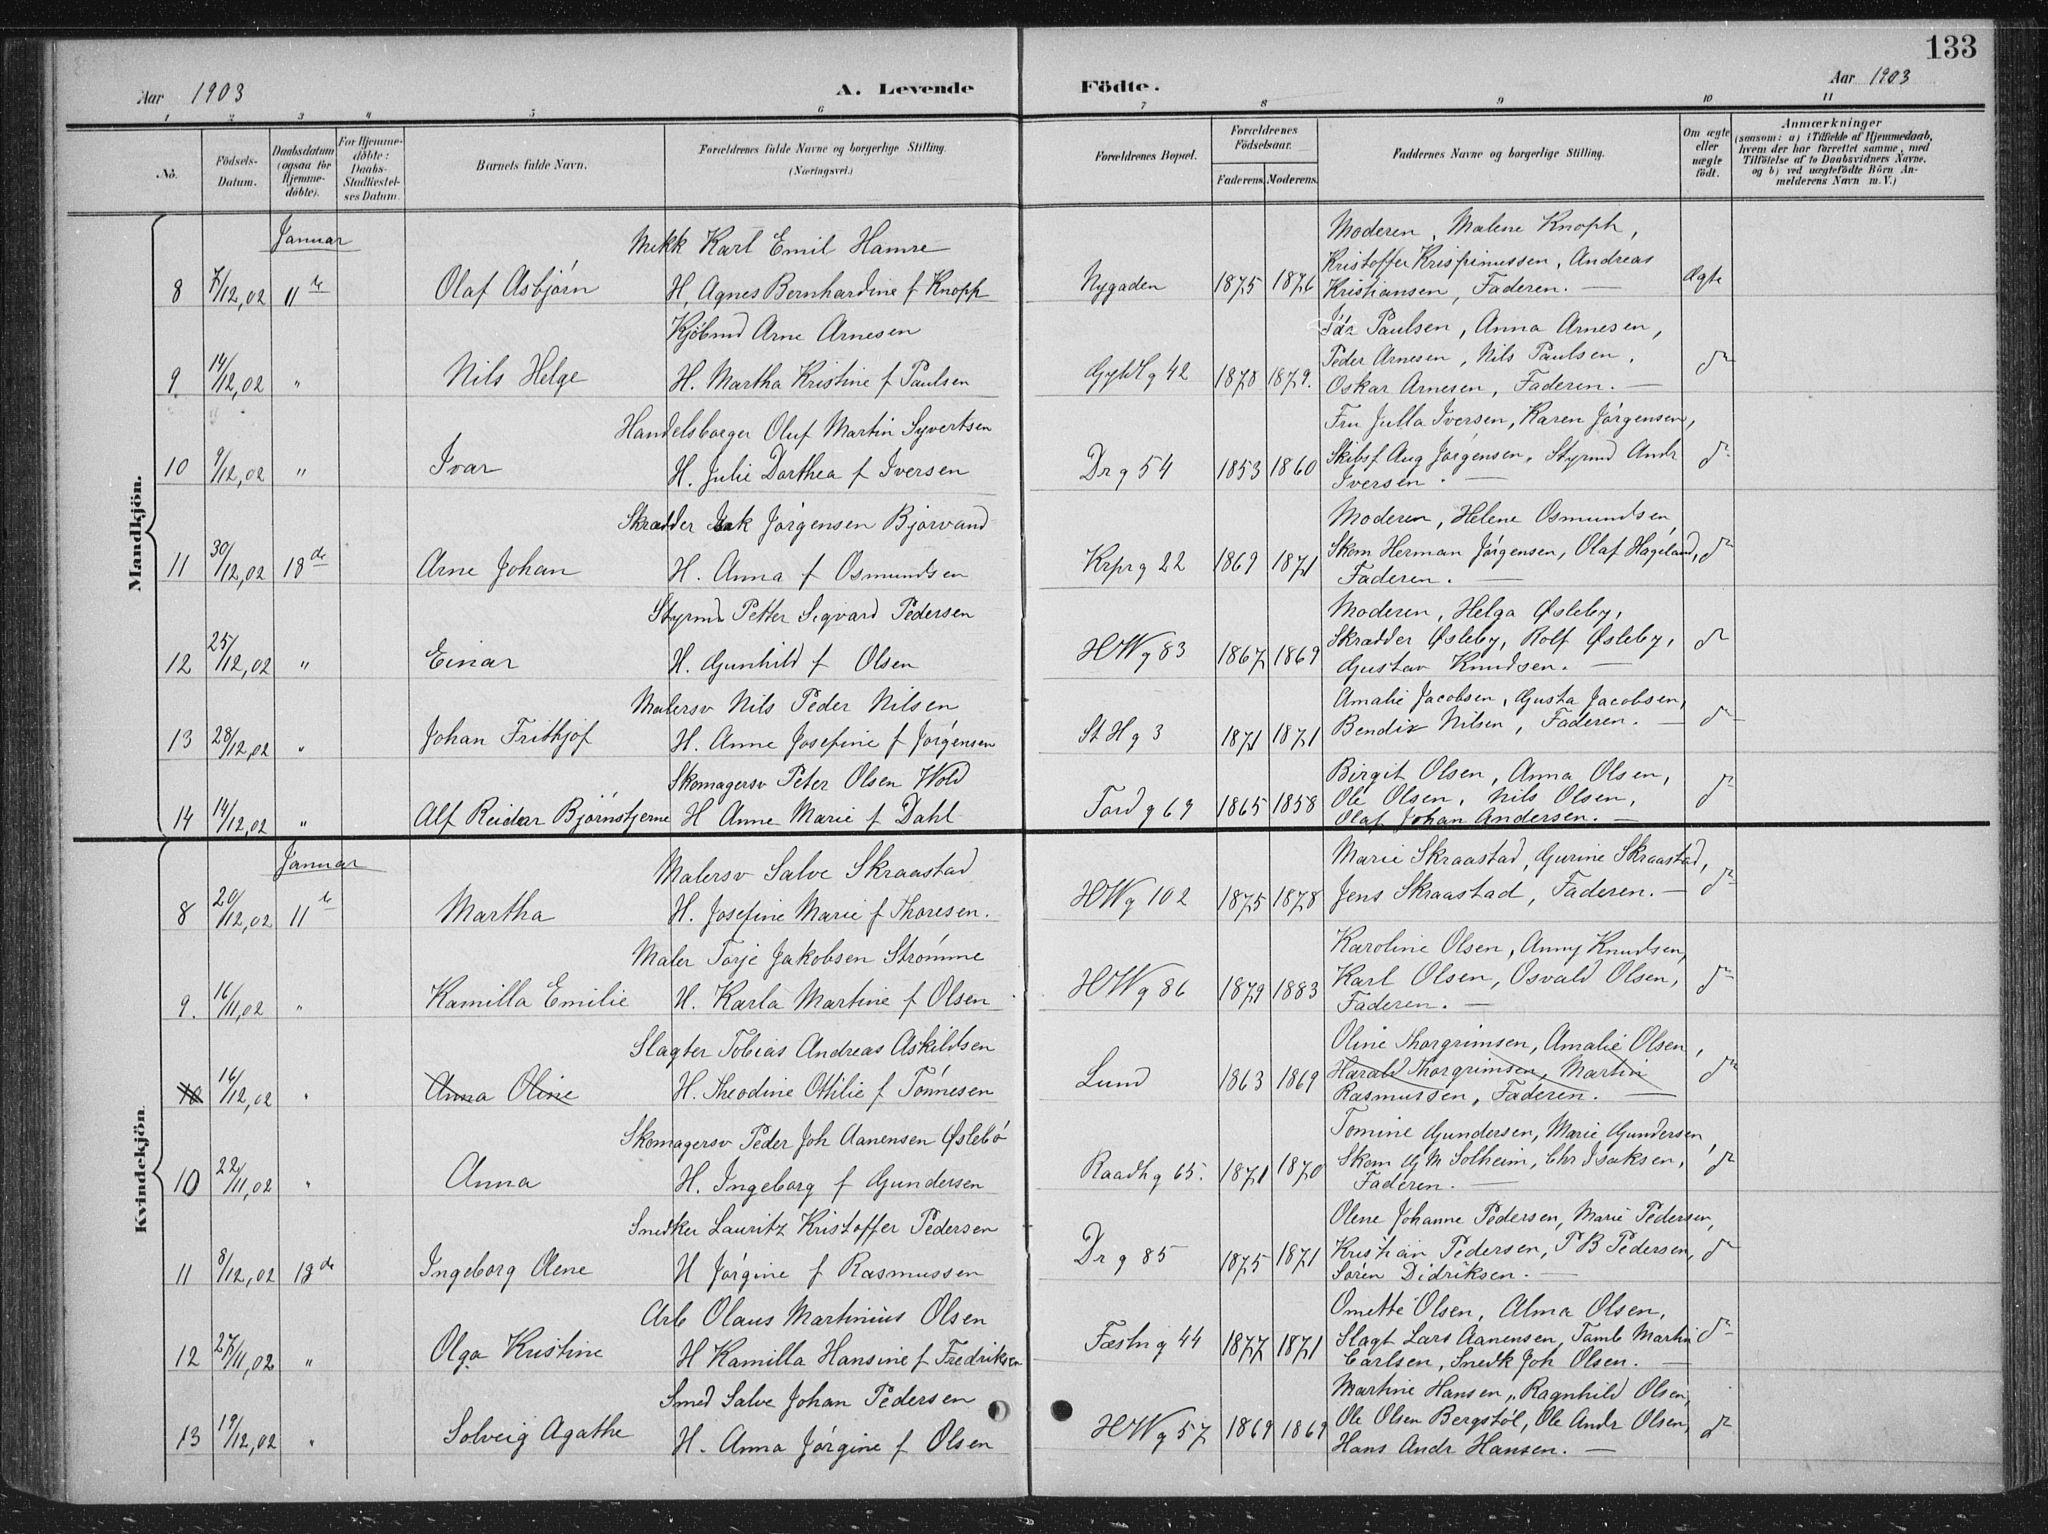 133
Aar 1903
A. Levende
Födte.
Aar 1903
1 2 3 4 5 6 7 8 9 10 11
No.
Födsels-Datum.
Daabsdatum (ogsaa for Hjemme-döbte).
For Hjemme-döbte: Daabs-Stadfæstel-ses Datum.
Barnets fulde Navn.
Forældrenes fulde Navne og borgerlige Stilling. (Næringsvei.)
Forældrenes Bopæl.
Forældrenes Födselsaar.
Faderens. Moderens.
Faddernes Navne og borgerlige Stilling.
Om ægte eller uægte födt.
Anmærkninger
(saasom: a) i Tilfælde af Hjemmedaab,
hvem der har forrettet samme, med
Tilföielse af to Daabsvidners Navne,
og b) ved uægtefödte Börn An-
melderens Navn m. V.)
Mandkjön.
Januar
Mekk Karl Emil Hamre
Moderen, Malene Knoph,
Kristoffer Krispinussen, Andreas
8 7/12,02 11te Olaf Asbjørn H. Agnes Bernhardine f Knoph Nygaden 1875 1876 Kristiansen, Faderen. — Ægte
Kjøbmd Arne Arnesen
Paulsen, Anna Arnesen,
Peder Arnesen, Nils Paulsen,
9 14/12,02 " Nils Helge H. Martha Kristine f Paulsen Gyldlg 42 1878 1879. Oskar Arnesen, Faderen. — do
Handelsborger Oluf Martin Syvertsen
Fru Julla Iversen, Karen Jørgensen,
10 9/12,02 " Ivar H. Julie Dorthea f Iversen Drg 54 1853 1860 Skibsf Aug Jørgensen, Styrmd Andr do
Iversen. —
Skrædder Isak Jørgensen Bjorvand
Moderen, Helene Osmundsen,
11 30/12,02 18de Arne Johan H. Anna f Osmundsen Krprg 22 1869 1871 Skom Herman Jørgensen, Olaf Hageland, do
Faderen. —
Styrmd Petter Sigvard Pedersen
Moderen, Helga Øsleby,
Skrædder Øsleby, Rolf Øsleby,
12 25/12,02 " Einar H. Gunhild f Olsen HWg 83 1867 1869 Gustav Knudsen. — do
Malersv Nils Peder Nilsen
Amalie Jacobsen, Gusta Jacobsen,
13 28/12,02 " Johan Frithjof H. Anne Josefine f Jørgensen St Hg 3 1871 1871 Bendix Nilsen, Faderen. — do
Skomagersv Peter Olsen Wold
Birgit Olsen, Anna Olsen,
Ole Olsen, Nils Olsen,
14 14/12,02 " Alf Reidar Bjørnstjerne H Anne Marie f Dahl Tordg 69 1865 1858 Olaf Johan Andersen. — do
Kvindekjön.
Januar
Malersv Salve Skraastad
Marie Skraastad, Gurine Skraastad,
8 20/12,02 11te Martha H. Josefine Marie f Thoresen. HWg 102 1875 1878 Jens Skraastad, Faderen. — do
Maler Torje Jakobsen Strømme
Karoline Olsen, Anny Knudsen,
Karl Olsen, Osvald Olsen,
9. 16/11,02 " Kamilla Emilie H. Karla Martine f Olsen HWg 86 1879 1883 Faderen. — do
Slagter Tobias Andreas Askildsen
Oline Thorgrimsen, Amalie Olsen,
Harald Thorgrimsen, Martin
10 16/12,02 " Anna Oline H. Theodine Ottilie f Tønnesen Lund 1863 1869 Rasmussen, Faderen. — do
Skomagersv Peder Joh Aanensen Øslebø
Tomine Gundersen, Marie Gundersen,
10 22/11,02 " Anna H. Ingeborg f Gundersen Raadhg 65. 1871 1870 Skom G M Solheim, Chr Isaksen, do
Faderen. —
Snedker Lauritz Kristoffer Pedersen
Olene Johanne Pedersen, Marie Pedersen,
Kristian Pedersen, P B Pedersen,
11 8/12,02 18de Ingeborg Olene H Jørgine f Rasmussen Drg 85 1875 1871 Søren Didriksen. — do
Arb Olaus Martinius Olsen
Omette Olsen, Alma Olsen,
Slagt Lars Aanensen, Tamb Martin
12 27/11,02 " Olga Kristine H Kamilla Hansine f Fredriksen Fæstng 44 1877 1871 Carlsen, Snedk Joh Olsen. — do
Smed Salve Johan Pedersen
Martine Hansen, Ragnhild Olsen,
Ole Olsen Bergstøl, Ole Andr Olsen,
13 19/12,02 " Solveig Agathe H. Anna Jørgine f Olsen HWg 57 1869 1869 Hans Andr Hansen. — do